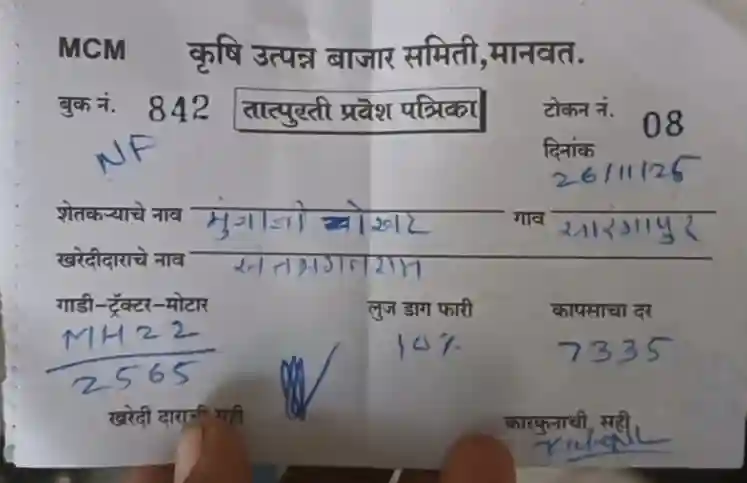 MCM कृषि उत्पन्न बाजार समिती,मानवत.
बुक नं. 842 तात्पुरती प्रवेश पत्रिका टोकन नं. 08
NF
दिनांक
26/11/25
शेतकऱ्याचे नाव मुंजाजी चोखट गाव सारंगापुर
खरेदीदाराचे नाव
गाडी-ट्रॅक्टर-मोटार लुज डाग फारी कापसाचा दर
MH22 10% 7335
2565
खरेदी दाराची सही कारकुनाची, सही